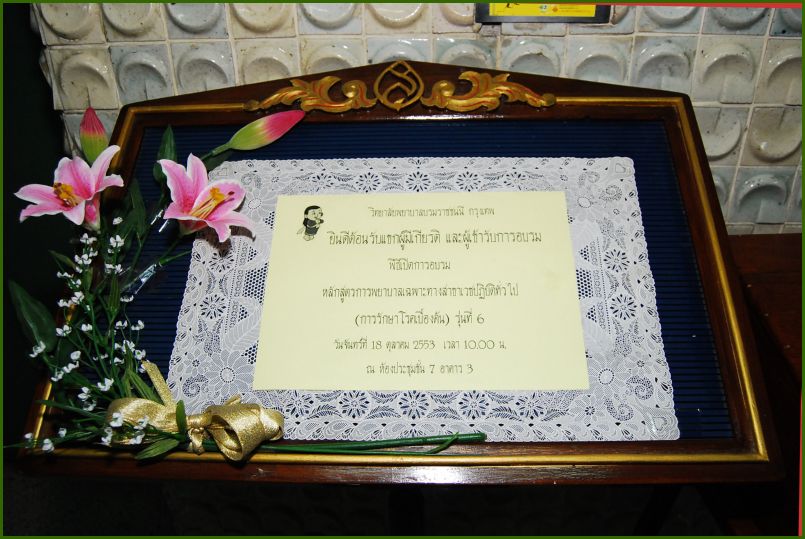 วิทยาลัยพยาบาลบรมราชชนนี กรุงเทพ
ยินดีต้อนรับแขกผู้มีเกียรติ และผู้เข้ารับการอบรม
พิธีเปิดการอบรม
หลักสูตรการพยาบาลเฉพาะทางสาขาเวชปฏิบัติทั่วไป
(การรักษาโรคเบื้องต้น) รุ่นที่ 6
วันจันทร์ที่ 18 ตุลาคม 2553 เวลา 10.00 น.
ณ ห้องประชุมชั้น 7 อาคาร 3